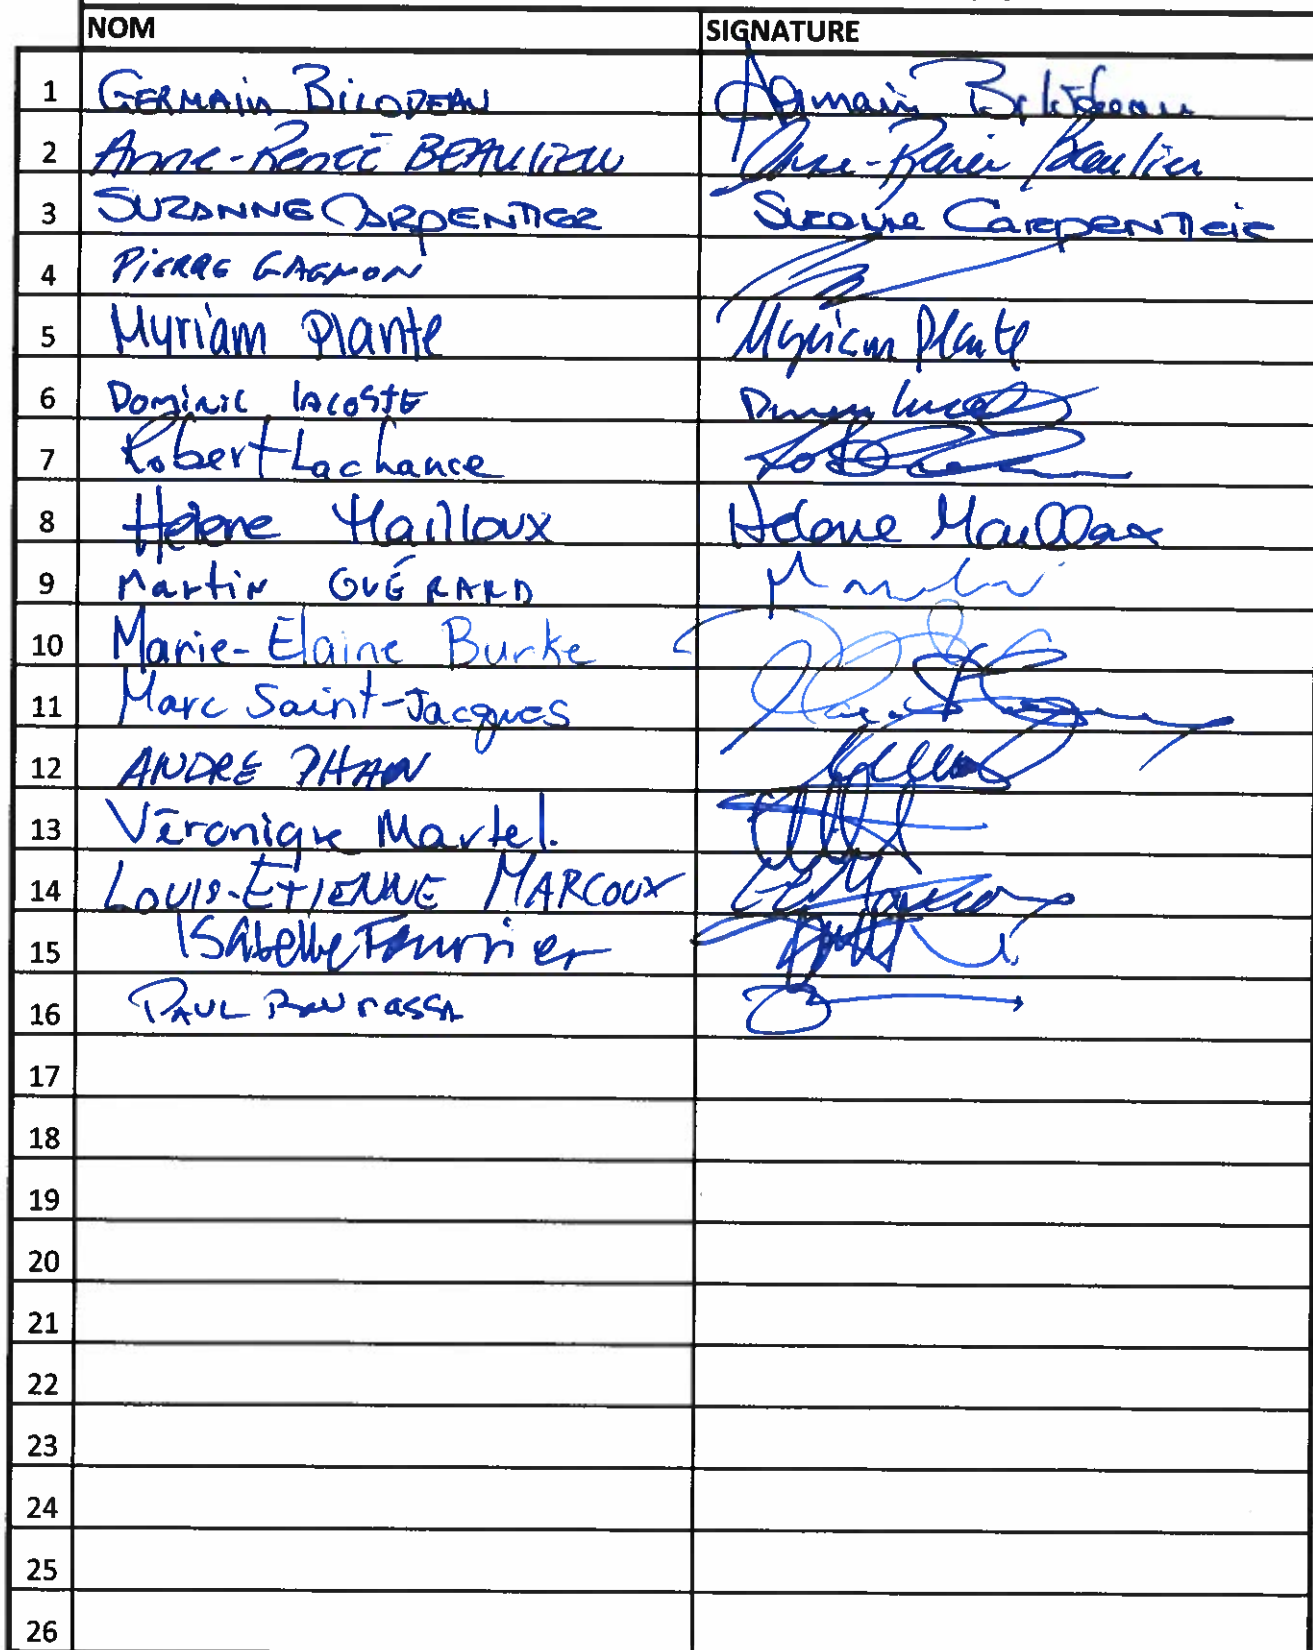 NOM SIGNATURE
1 GERMAIN BILODEAU Germain Bilodeau
2 Anne-Renée BEAULIEU Anne-Renée Beaulieu
3 SUZANNE CARPENTIER Suzanne CARPENTIER
4 PIERRE GAGNON
5 Myriam Plante Myriam Plante
6 Dominic LACOSTE
7 Robert Lachance
8 Hélène Mailloux Hélène Mailloux
9 Martin GUÉRARD
10 Marie-Elaine Burke
11 Marc Saint-Jacques
12 ANDRE PHAN
13 Véronique Martel.
14 LOUIS-ÉTIENNE MARCOUX
15 Isabelle Fournier
16 PAUL Bourassa
17
18
19
20
21
22
23
24
25
26